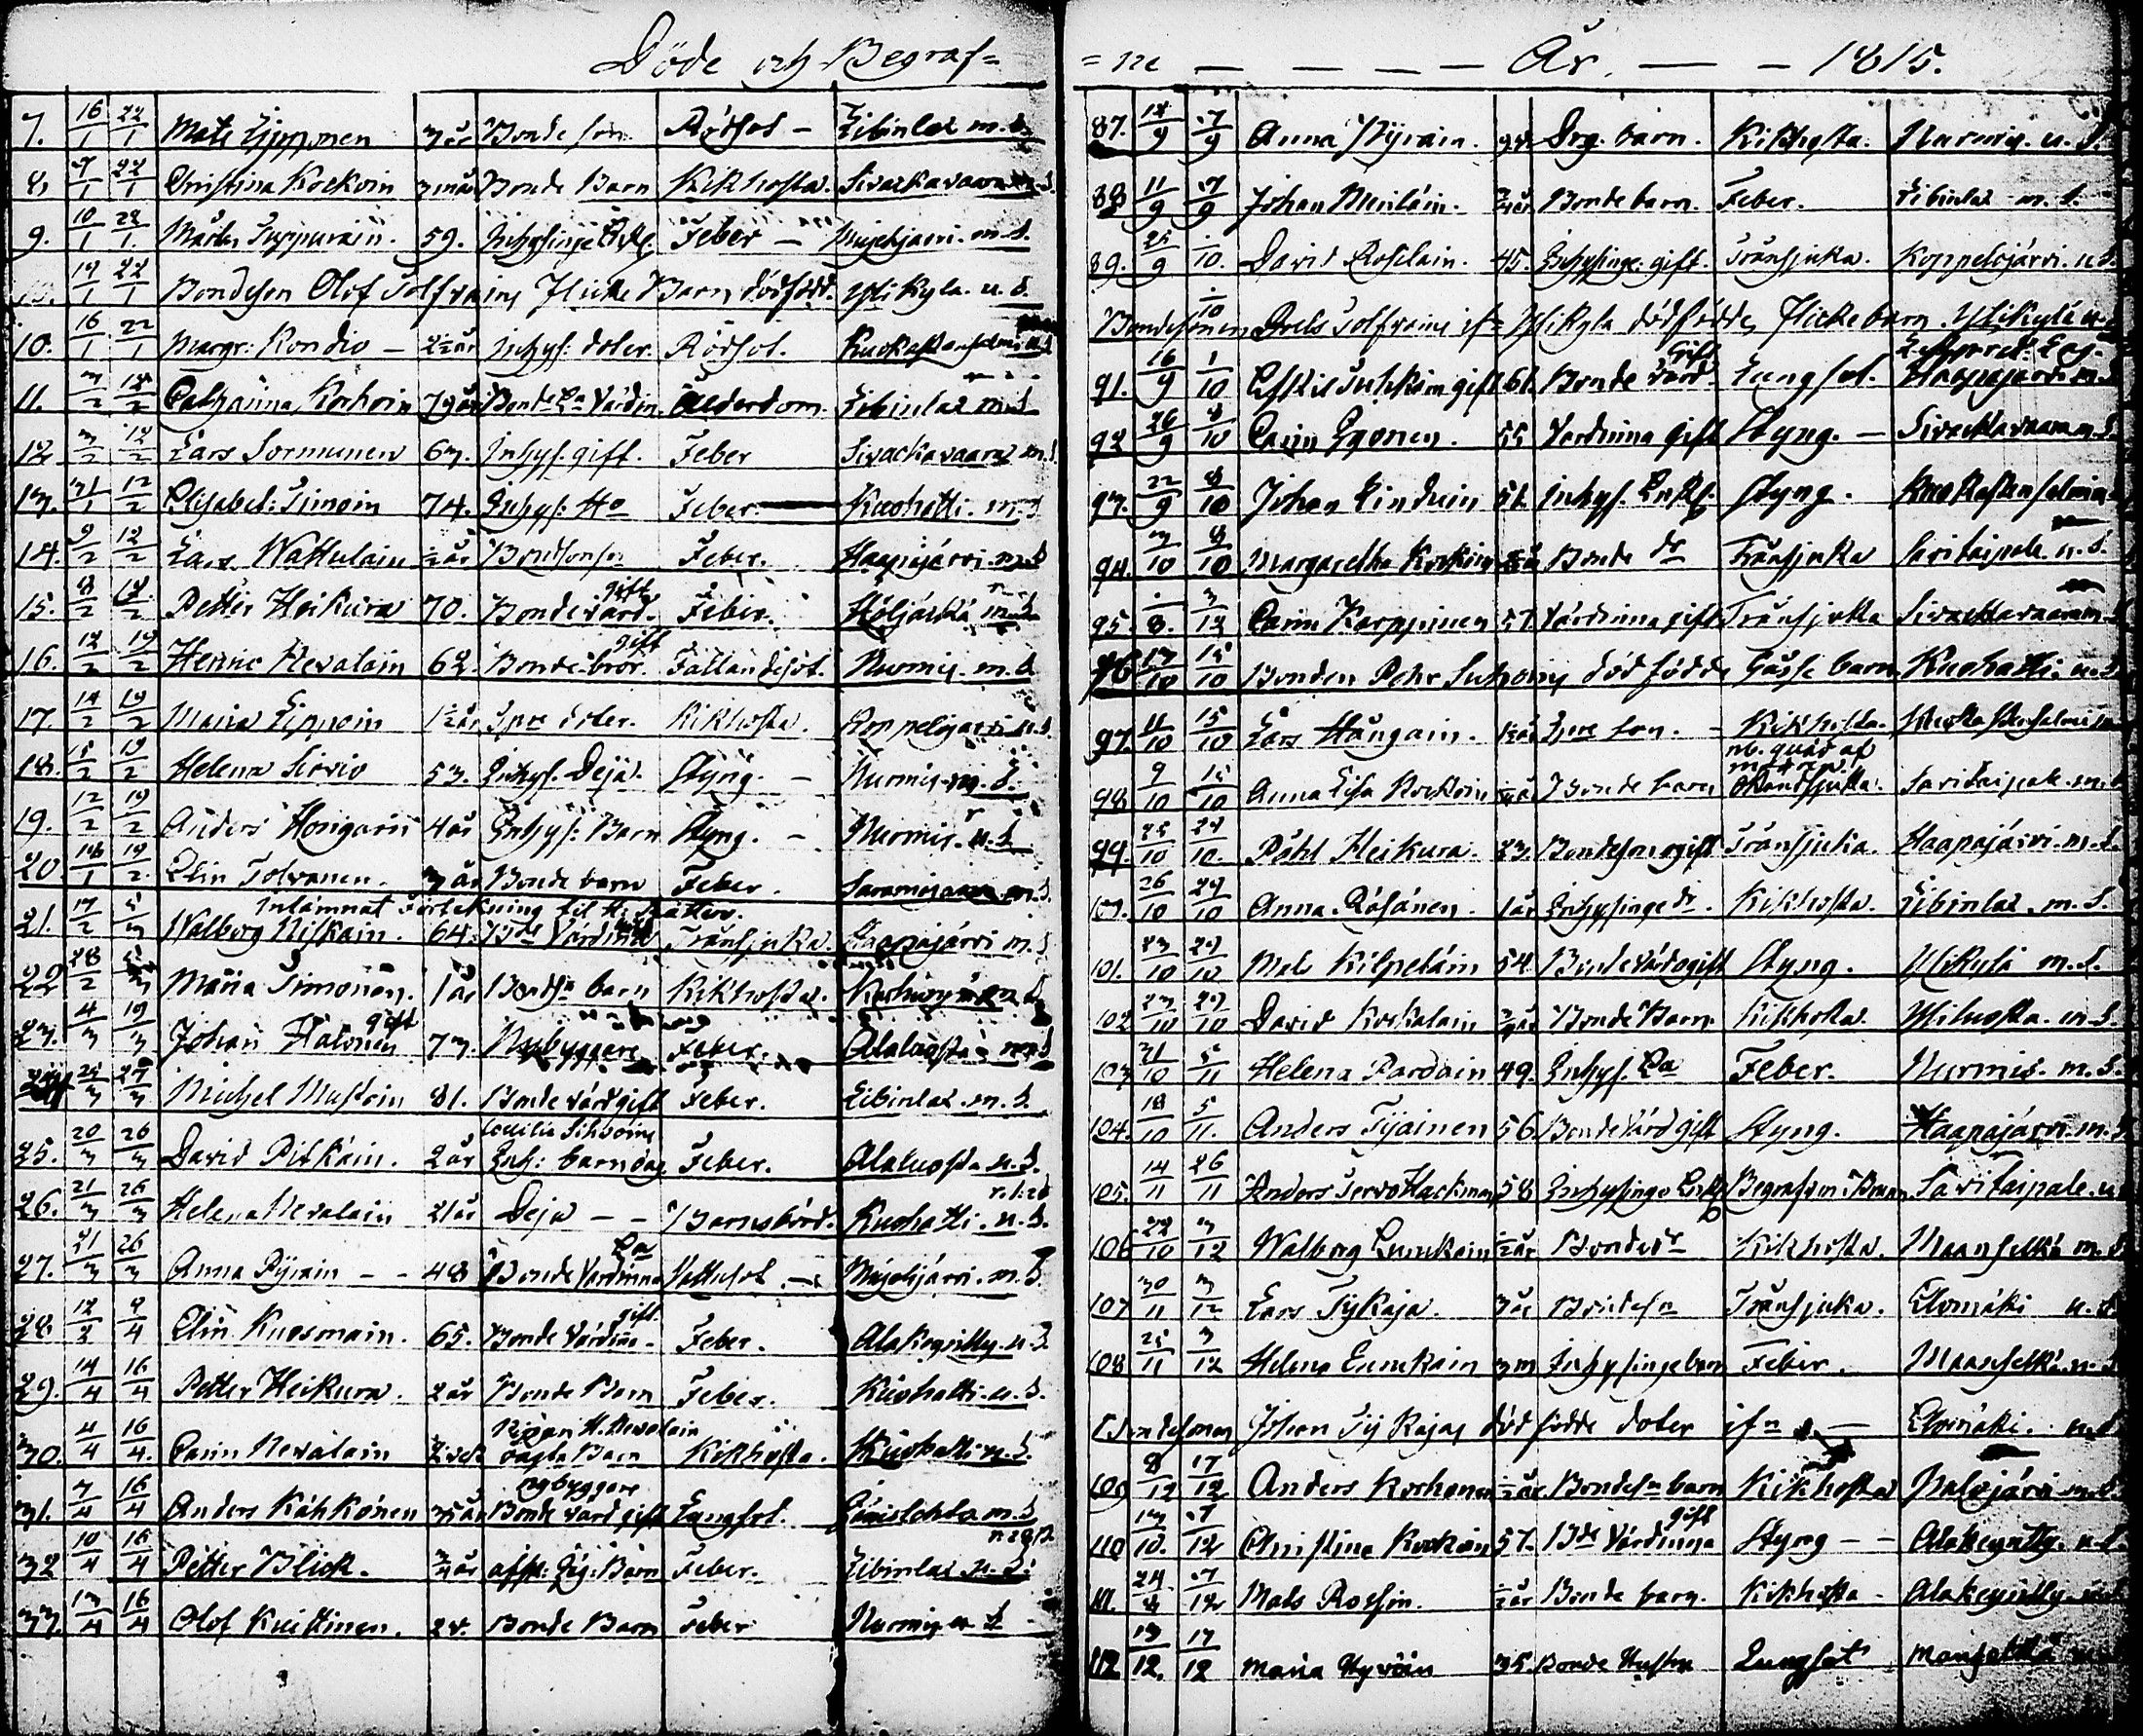 Döde och Begraf=
7. 16/1 22/1 Mats Lipponen 3 år Bonde son Rödsot - Libinlax m.S.
8. 9/1 22/1 Christina Kockoin 3 mån Bonde Barn Kikhosta. Sivackavaara m.S.
9. 10/1 22/1. Mårten Turpurain. 59. Inhysinge Enkl. Feber - Mujejärvi. m.S.
19/1 22/1 Bondeson Olof Tolfvains Flicke Barn dödfödd. Ylikyla. u.S.
10. 16/1 22/1 Margr: Kondio - 2½ år Inhys: doter. Rödsot. Kuokastensalmi
11. 3/2 12/2 Catharina Korhoin 79 år Bonde Ea Värdin Ålderdom. Libinlax m.S
12 3/2 12/2 Lars Sormunen 63. Inhys. gift. Feber Sivackavaara m.S.
13. 31/1 12/2 Elisabet: Simoin 74. Inhys: Ha Feber. Kuohatti. m.S
14. 9/2 12/2 Lars Wattulain ½ år Bondson Feber. Haapajärvi. m.S
15. 8/2 12/2 Petter Heikura 70. Bonde värd. gift Feber. Höljäkkä m.S.
16. 12/2 19/2 Henric Nevalain 62. Bonde bror. gift Fallandesot. Nurmis. m.S
17. 14/2 19/2 Maria Lippoin 1½ år doter. Kikhosta. Koppelojärvi u.S.
18. 15/2 19/2 Helena Sirvio 53. Inhys. Deja. Styng. - Nurmis. m.S.
19. 12/2 19/2 Anders Hongain 4 år Inhys: Barn Styng. - Nurmis. u.S
20. 1/1 19/2. Elin Tolvanen. 3 år Bonde barn Feber. Saramovaara m.S.
Inlämnat Förtekning til H. Rätten.
21. 17/2 5/3 Walborg Niskain. 64. Bde Värdinna Trånsjuka. Haapajärvi m.S
22 28/2 5/3 Maria Simonen. 1 år Bondsn barn Kikhosta.
23. 4/3 19/3 Johan Halonen gift 73. Nybyggare Feber. Alaluosta m.S
24 24/3 29/3 Michel Mustoin 81. Bonde värd gift Feber. Libinlax. m.S.
25. 20/3 26/3 David Pitkäin. 2 år Inh: barn Cecilia Sihvoins Feber. Alaluosta u.S.
26. 21/3 26/3 Helena Nevalain 21 år Deja - - Barnsbörd. Kuohatti. u.S.
27. 21/3 26/3 Anna Pyrain - - 48 Bonde Värdinna Ea Vattusot - Mujejärvi. m.S.
28 12/2 9/4 Elin Kuosmain. 65. Bonde Värdinn. gift Feber. Alakeyritty. u.S
29. 14/4 16/4 Petter Heikura. 2 år Bonde Barn Feber. Kuohatti. u.S.
30. 4/4 16/4. Carin Nevalain Pigan H. Nevalain oägta Barn Kikhosta. Kuohatti u.S.
31. 7/4 16/4 Anders Kähkönen 35 år Bonde värd gift nybyggare Lungsot. m.S
32 10/4 16/4 Petter Blick. ¾ år afsk: Barn Feber. Libinlax u.S.
33. 13/4 16/4 Olof Kuittinen. 24. Bonde Barn Feber Nurmis u.S
=ne - - - - År. - - 1815.
87. 12/9 17/9 Anna Pyrain. Drg. barn. Kikhosta. Nurmis. u.S.
88 11/9 17/9 Johan Meriläin. ¾ år Bonde barn. Feber. Libinlax m.S.
89. 25/9 1/10. David Roselain. 45. Inhysinge. gift. Trånsjuka. Koppelojärvi. u.S.
1/10 Bondesonen Tolfvains dödfödde Flicke barn. Ylikylä u.S
91. 16/9 1/10 Eskil Suhkoin gift 61. Bonde värd. Gift Lungsot. Haapajärvi m.S
92 26/9 8/10 Carin Eronen. 55 Värdinna gift Styng. - Sivackavaara m.S.
93. 22/9 8/10 Johan Lindvin 51. Inhys. Enkl. Styng. Kuokastensalmi
94. 3/10 8/10 Margaretha Kockoin Bonde dr Trånsjuka Saritaipale. u.S.
95. 8. 3/12 Carin Karppinen 57. Värdinna gift Trånsjuka Sivackavaara m.S
96 13/10 15/10 Bonden Pehr Suhonens dödfödde Gåsse barn Kuohatti. u.S
97. 11/10 15/10 Lars Hångain. 1½ år son. - Kikhosta. Kuokastensalmi
98. 9/10 15/10 Anna Lisa Kockoin Bonde barn nb. quäd af modren okändsjuka. Saritaipale. m.S
99. 25/10 29/10. Påhl Heikura. 23. Bondeson ogift Trånsjuka. Haapajärvi. m.S.
100. 26/10 29/10 Anna. Räsänen. 1 år Inhysinge dr. Kikhosta. Libinlax. m.S.
101. 23/10 29/10 Mats Kilpeläin 54. Bonde värd ogift Styng. Ylikylä m.S.
102 23/10 29/10 David Koskalain ¾ år Bonde Barn Kikhosta. Yliluosta. m.S.
103 31/10 5/11 Helena Pardain 49. Inhys. Ea Feber. Nurmis. m.S.
104. 18/10 5/11. Anders Tijainen 56. Bonde Värd gift Styng. Haapajärvi. m.S
105. 14/11 26/11 Anders Tervo Hackman 58 Inhysinge Enkl. Saritaipale. u.S
106 22/10 3/12 Walborg Lunckain ½ år Bonde dr Kikhosta. Maanselkä m.S
107 30/11 3/12 Lars Tykäjä. 3 år Bondesn Trånsjuka. Elomäki u.S
108 25/11 3/12 Helena Lunckain 3 m Inhysinge barn Feber. Maanselkä. m.S
Bondesonen Johan Tykäjäs dödfödde doter - Elomäki. u.S
109 8/12 17/12 Anders Korhonen ½ år Bondesn barn Kikhosta Palojärvi m.S.
110 13/10. 17/12 Christina Kockoin 57. Bde Värdinna gift Styng - - Alakeyritty. u.S.
111. 24/8 17/12 Mats Rossin. ½ år Bonde barn. Kikhosta - Alakeyritty. u.S
112 13/12. 17/12 Maria Hyvöin 35. Bonde Hustru Lungsot Manselkä m.S